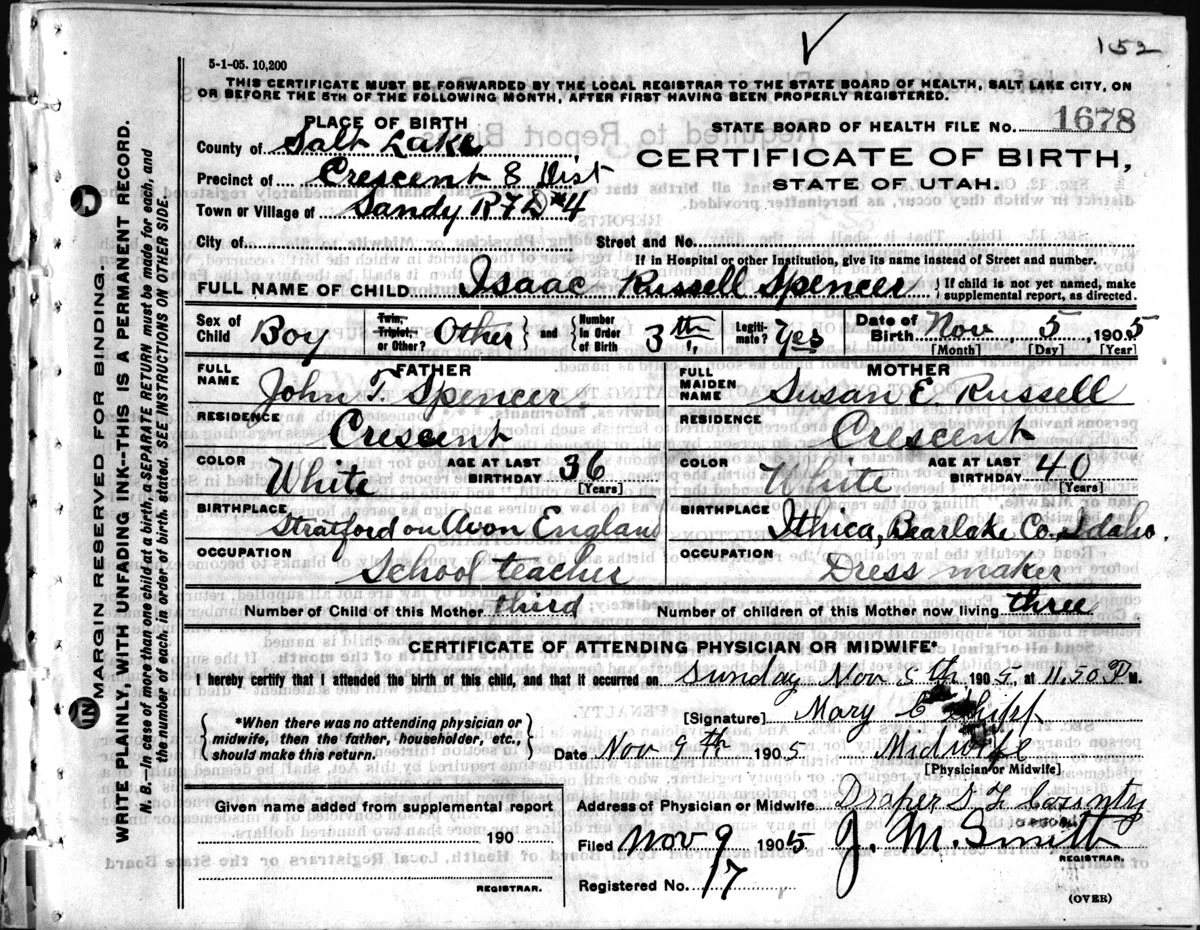 152
5-1-05. 10,200
THIS CERTIFICATE MUST BE FORWARDED BY THE LOCAL REGISTRAR TO THE STATE BOARD OF HEALTH, SALT LAKE CITY, ON
OR BEFORE THE 5TH OF THE FOLLOWING MONTH, AFTER FIRST HAVING BEEN PROPERLY REGISTERED.
PLACE OF BIRTH
STATE BOARD OF HEALTH FILE NO. 1678
County of Salt Lake
CERTIFICATE OF BIRTH,
Precinct of Crescent 8 Dist
STATE OF UTAH.
Town or Village of Sandy R F D #4
City of Street and No.
If in Hospital or other Institution, give its name instead of Street and number.
FULL NAME OF CHILD Isaac Russell Spencer { If child is not yet named, make
supplemental report, as directed.
Sex of Child Boy
Twin, Triplet, or Other? Other } and { Number in Order of Birth 3th
Legitimate? Yes
Date of Birth Nov, 5, 1905
[Month] [Day] [Year]
FATHER
FULL NAME John T. Spencer
RESIDENCE Crescent
COLOR White AGE AT LAST BIRTHDAY 36
[Years]
BIRTHPLACE Stratford on Avon England
OCCUPATION School teacher
MOTHER
FULL MAIDEN NAME Susan E Russell
RESIDENCE Crescent
COLOR White AGE AT LAST BIRTHDAY 40
[Years]
BIRTHPLACE Ithica, Bearlake Co., Idaho.
OCCUPATION Dress maker
Number of Child of this Mother third Number of children of this Mother now living three
CERTIFICATE OF ATTENDING PHYSICIAN OR MIDWIFE*
I hereby certify that I attended the birth of this child, and that it occurred on Sunday Nov 5th 1905, at 11.50 P M.
{ *When there was no attending physician or
midwife, then the father, householder, etc.,
should make this return. }
[Signature] Mary
Date Nov 9th 1905 Midwife
[Physician or Midwife]
Given name added from supplemental report
190
REGISTRAR.
Address of Physician or Midwife Draper S. L. County
Filed Nov 9 1905 J. M. Smith
REGISTRAR.
Registered No. 17
(OVER)
MARGIN RESERVED FOR BINDING.
WRITE PLAINLY, WITH UNFADING INK--THIS IS A PERMANENT RECORD.
N. B.—In case of more than one child at a birth, a SEPARATE RETURN must be made for each, and
the number of each, in order of birth, stated. SEE INSTRUCTIONS ON OTHER SIDE.